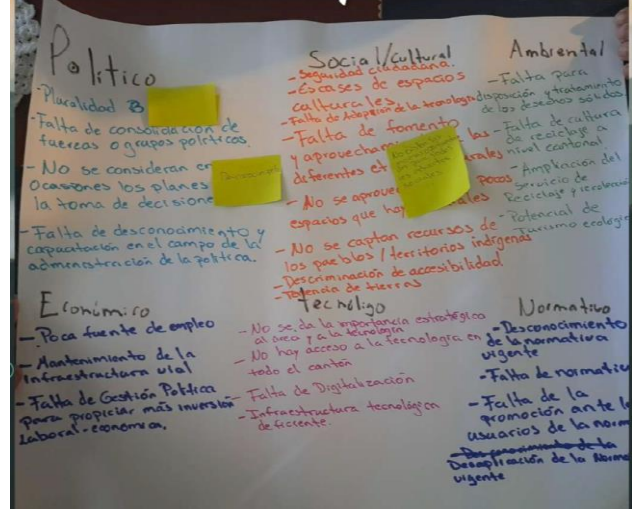 Político
- Pluralidad
- Falta de consolidación de
fuerzas o grupos políticos.
- No se consideran en
Ocasiones los planes
la toma de decisione
- Falta de desconocimiento y
capacitación en el campo de la
administración de la política.
Social/Cultural
- Seguridad ciudadana.
- Escases de espacios
culturales
- Falta de Adopción de la tecnología
- Falta de fomento
y aprovecham las
diferentes et rales
- No se aprove pocos
espacios que hay ales
- No se captan recursos de
los pueblos / territorios indígenas
- Descriminación de accesibilidad
- Tenencia de tierras
Ambiental
- Falta para
disposición y tratamiento
de los desechos sólidos.
- Falta de cultura
de reciclaje a
nivel cantonal.
- Ampliación del
Servicio de
Reciclaje y recolección
- Potencial de
Turismo ecológico
Económico
- Poca fuente de empleo
- Mantenimiento de la
infraestructura vial
- Falta de Gestión Política
para propiciar más inversión
laboral-económica.
Tecnóligo
- No se da la importancia estratégica
al área y a la tecnología
- No hay acceso a la tecnología en
todo el cantón
- Falta de Digitalización
- Infraestructura tecnológica
deficiente.
Normativo
- Desconocimiento
de la normativa
vigente
- Falta de normativa
- Falta de la
promoción ante l
usuarios de la norm
Desaplicación de la Norma
vigente